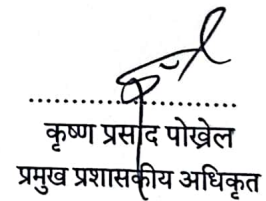 ........................................
कृष्ण प्रसाद पोख्रेल
प्रमुख प्रशासकीय अधिकृत